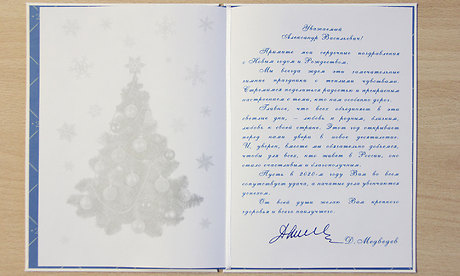 Уважаемый
Александр Васильевич!
Примите мои сердечные поздравления
с Новым годом и Рождеством.
Мы всегда ждем эти замечательные
зимние праздники с теплыми чувствами.
Стремимся поделиться радостью и прекрасным
настроением с теми, кто нам особенно дорог.
Главное, что всех объединяет в эти
светлые дни, – любовь к родным, близким,
любовь к своей стране. Этот год открывает
перед нами двери в новое десятилетие.
И, уверен, вместе мы обязательно добьемся,
чтобы для всех, кто живет в России, оно
стало счастливым и благополучным.
Пусть в 2020-м году Вам во всем
сопутствует удача, а начатые дела увенчаются
успехом.
От всей души желаю Вам крепкого
здоровья и всего наилучшего.
Д. Медведев